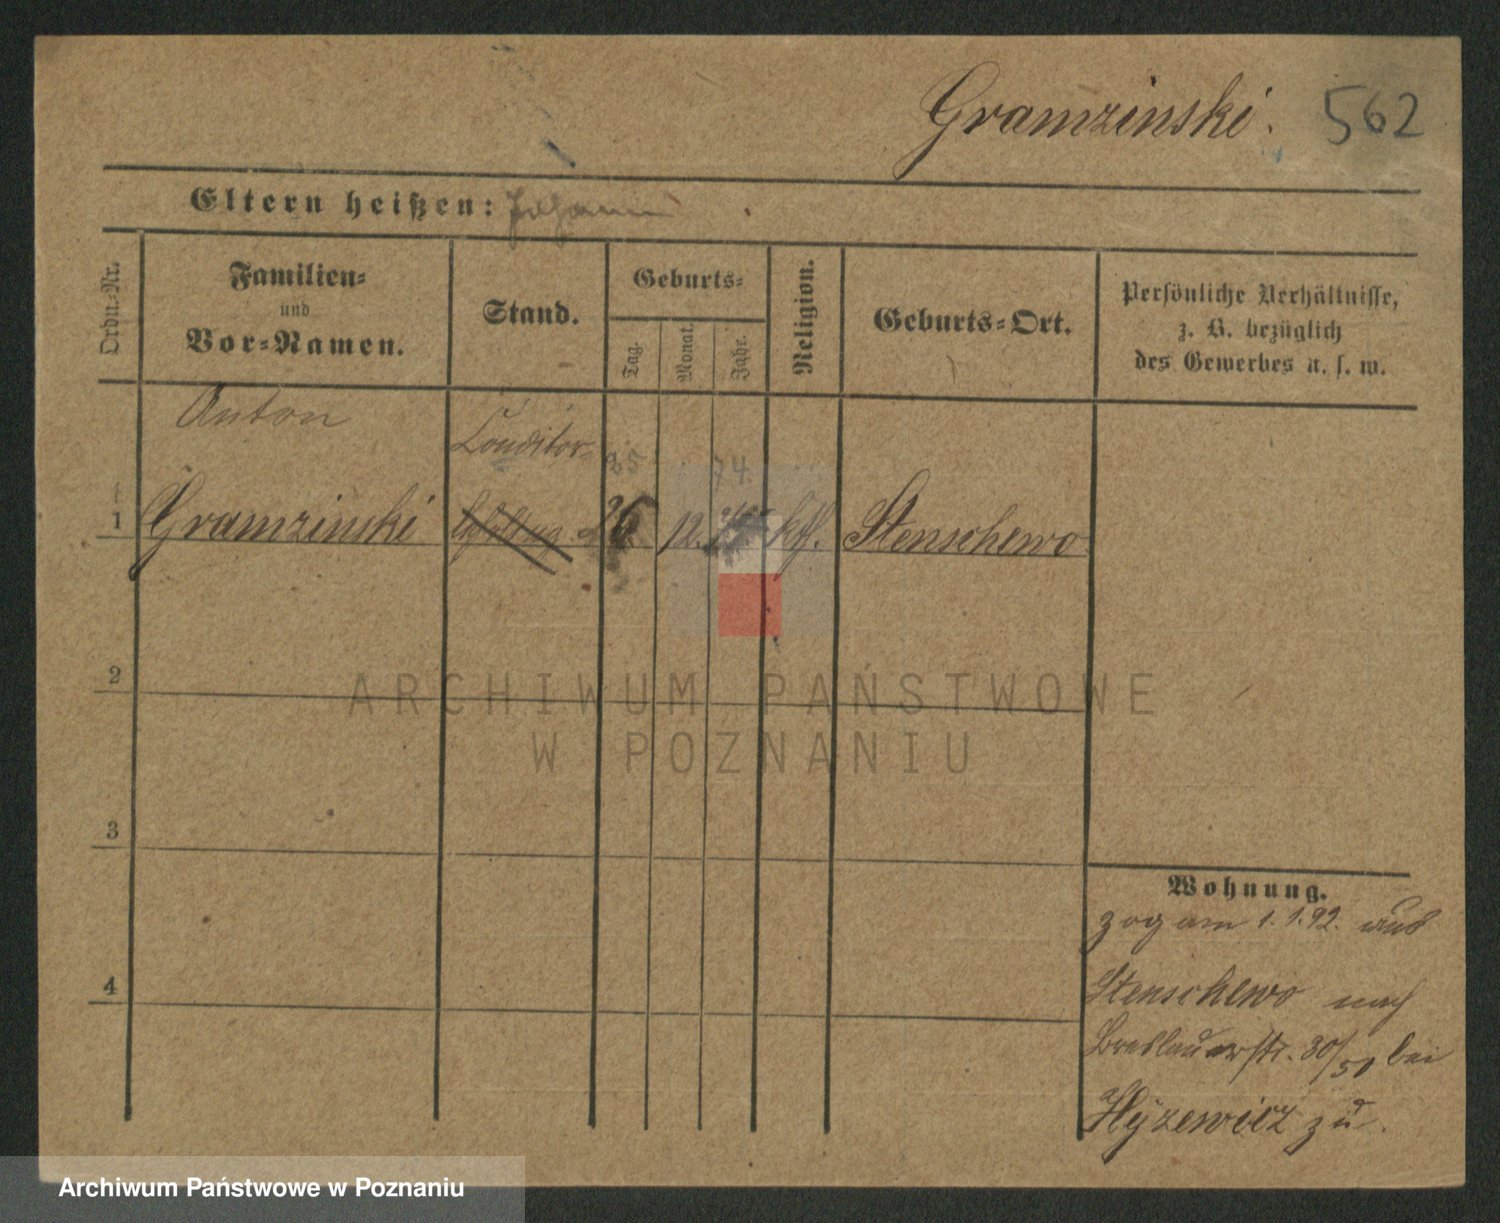 Gramzinski. 562
Eltern heißen: Johann
Ordn=Nr.
Familien=
und
Vor=Namen.
Stand.
Geburts=
Tag.
Monat.
Jahr.
Religion.
Geburts=Ort.
Persönliche Verhältnisse,
z. B. bezüglich
des Gewerbes u. s. w.
Anton
Conditor=
25 74
1 Gramzinski 26 12. kth. Stenschewo
2
3
4
Wohnung.
zog am 1.1.92. aus
Stenschewo nach
Breslauerstr. 30/50 bei
Hyzewicz zu.
ARCHIWUM PAŃSTWOWE
W POZNANIU
Archiwum Państwowe w Poznaniu